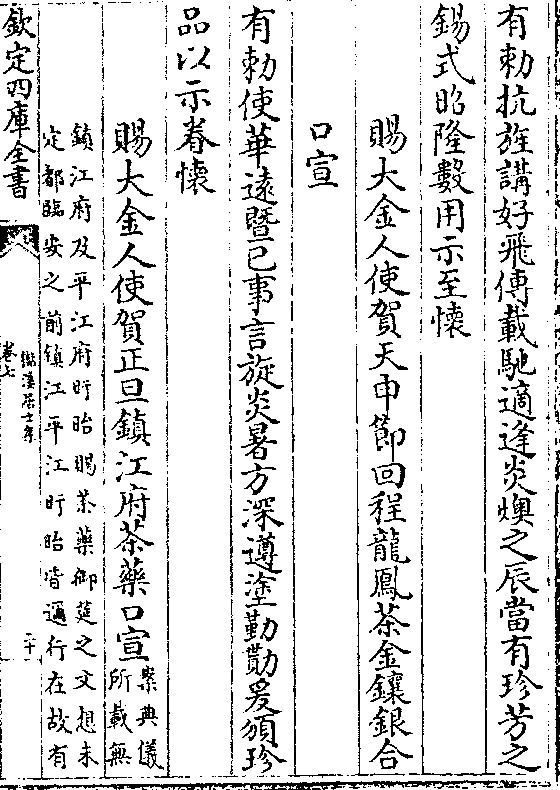 有勅抗旌講好飛傳載馳適逢炎燠之辰當有珍芳之
錫式昭隆數用示至懷
賜大金人使賀天申節回程龍鳳茶金鑲銀合
口宣
有勅使華遠暨已事言旋炎暑方深遵塗勤勩爰頒珍
品以示眷懷
賜大金人使賀正旦鎮江府茶藥口宣
案典儀
所載無
鎮江府及平江府盱眙賜茶藥御筵之文想未
定都臨安之前鎮江平江盱眙皆邇行在故有
欽定四庫全書
卷七
二十